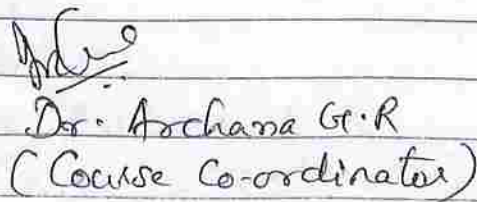 Dr. Archana G.R
(Course Co-ordinator)